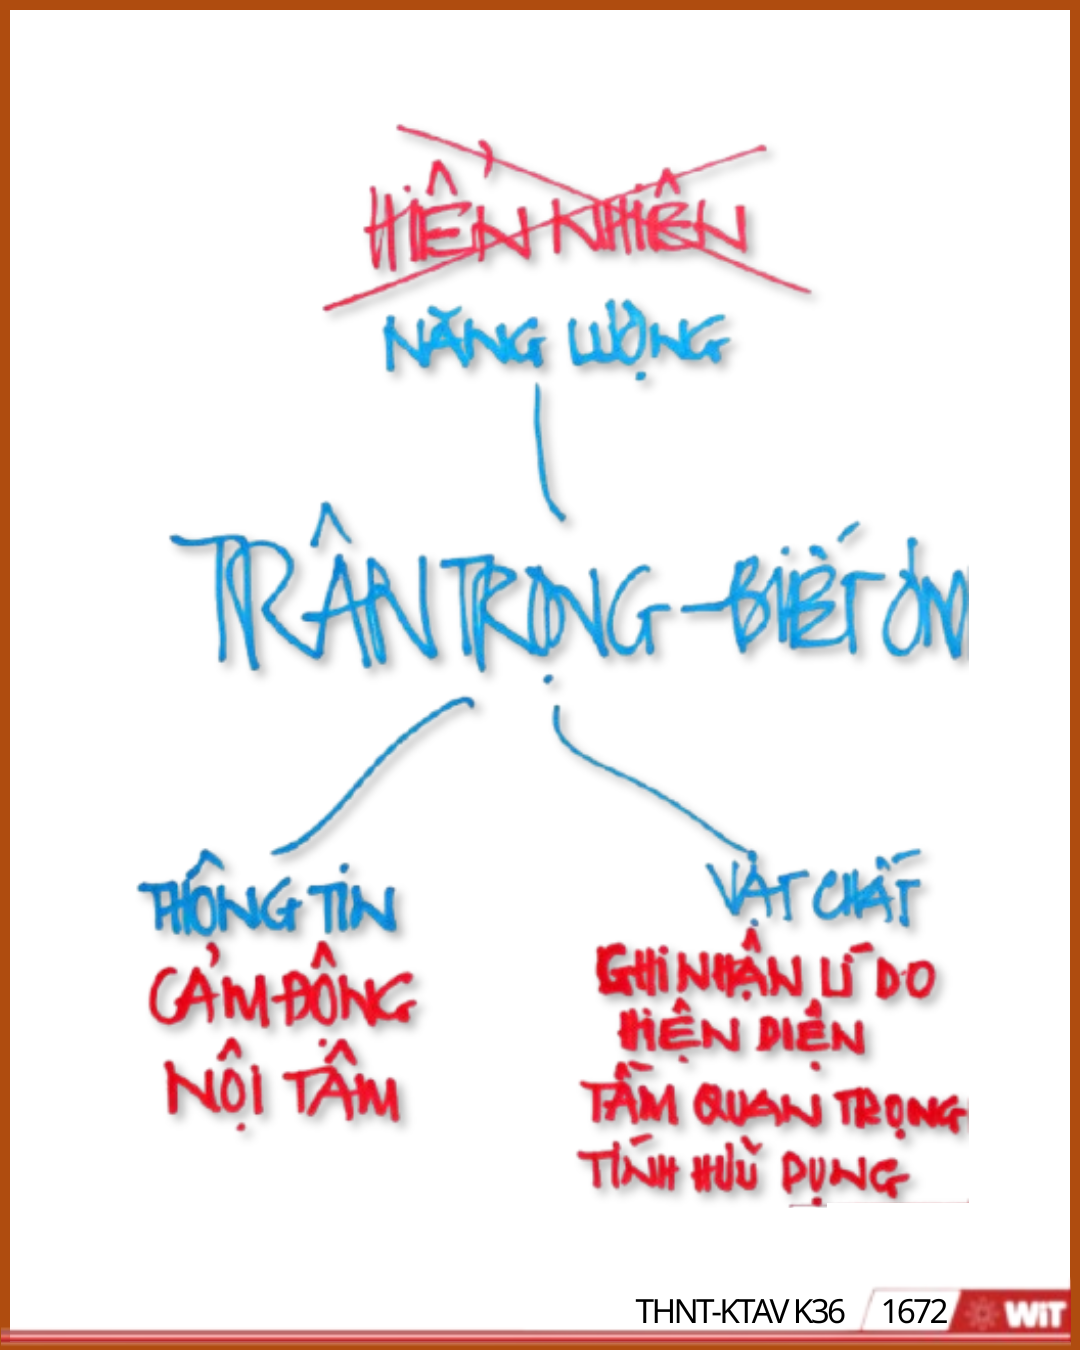 HIỂN NHIÊN
NĂNG LƯỢNG
TRÂN TRỌNG - BIẾT ƠN
THÔNG TIN
CẢM ĐỘNG
NỘI TÂM
VẬT CHẤT
GHI NHẬN LÍ DO
HIỆN DIỆN
TẦM QUAN TRỌNG
TÍNH HỮU DỤNG
THNT-KTAV K36 1672 WiT